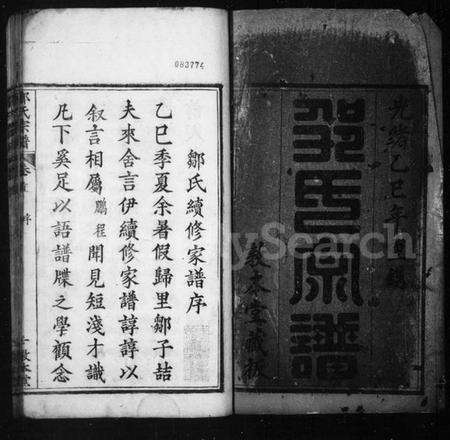 光緒乙巳年
鄒氏宗譜
敦本堂藏板
MySearch
083774
鄒氏續修家譜序
乙巳季夏余暑假歸里鄒子喆
夫來舍言伊續修家譜諄諄以
叙言相屬鵬程聞見短淺才識
凡下奚足以語譜牒之學顧念
鄒氏宗譜 卷首 序 一 敦本堂